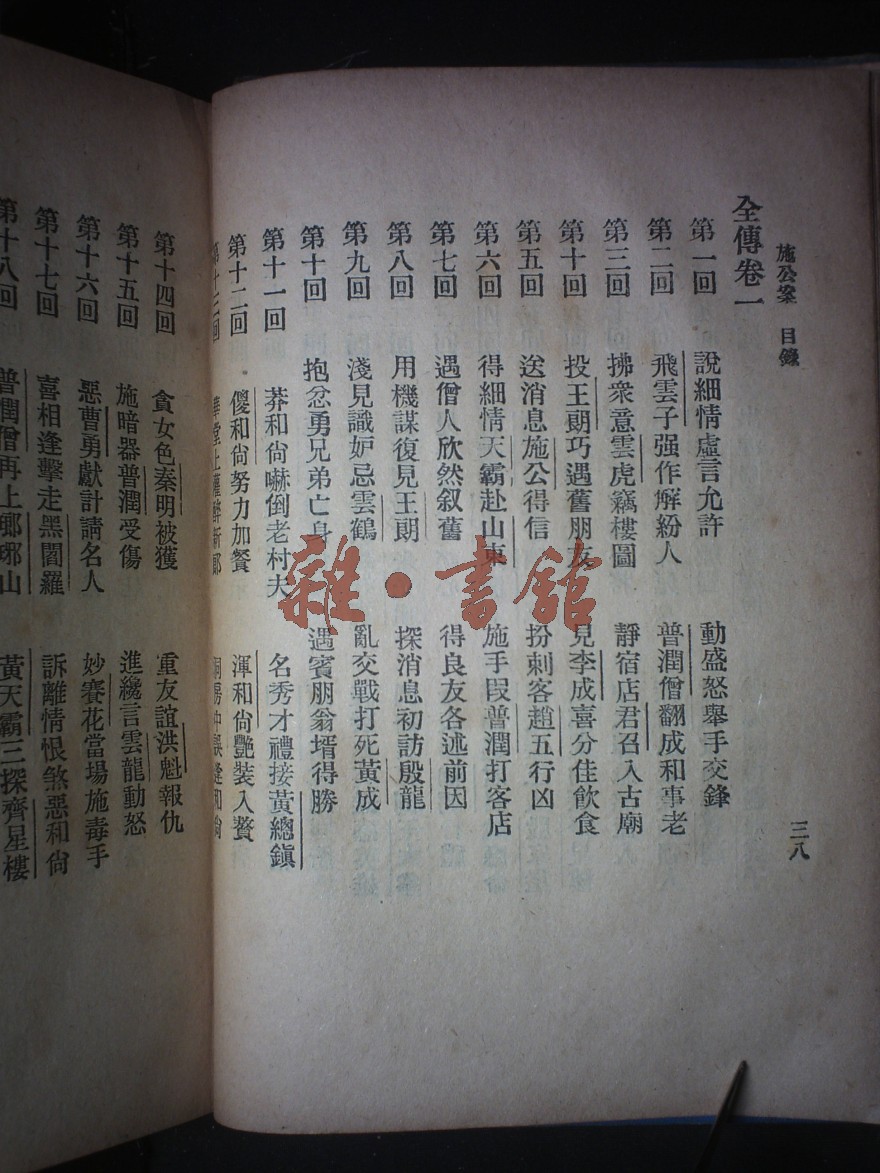 施公案 目錄 三八
全傳卷一
第一回 說細情虛言允許 動盛怒舉手交鋒
第二回 飛雲子强作解紛人 普潤僧翻成和事老
第三回 拂衆意雲虎竊樓圖 靜宿店君召入古廟
第十回 投王朗巧遇舊朋友 見李成喜分佳飲食
第五回 送消息施公得信 扮刺客趙五行凶
第六回 得細情天霸赴山東 施手段普潤打客店
第七回 遇僧人欣然叙舊 得良友各述前因
第八回 用機謀復見王朗 探消息初訪殷龍
第九回 淺見識妒忌雲鶴 亂交戰打死黃成
第十回 抱忿勇兄弟亡身 遇賓朋翁壻得勝
第十一回 莽和尙嚇倒老村夫 名秀才禮接黃總鎭
第十二回 傻和尙努力加餐 渾和尙艷裝入贅
第十三回 華堂上灌醉新郎 洞房中誤逢和尙
第十四回 貪女色秦明被獲 重友誼洪魁報仇
第十五回 施暗器普潤受傷 進纔言雲龍動怒
第十六回 惡曹勇獻計請名人 妙賽花當場施毒手
第十七回 喜相逢擊走黑閻羅 訴離情恨煞惡和尙
第十八回 普潤僧再上瑯琊山 黃天霸三探齊星樓
雜·書館